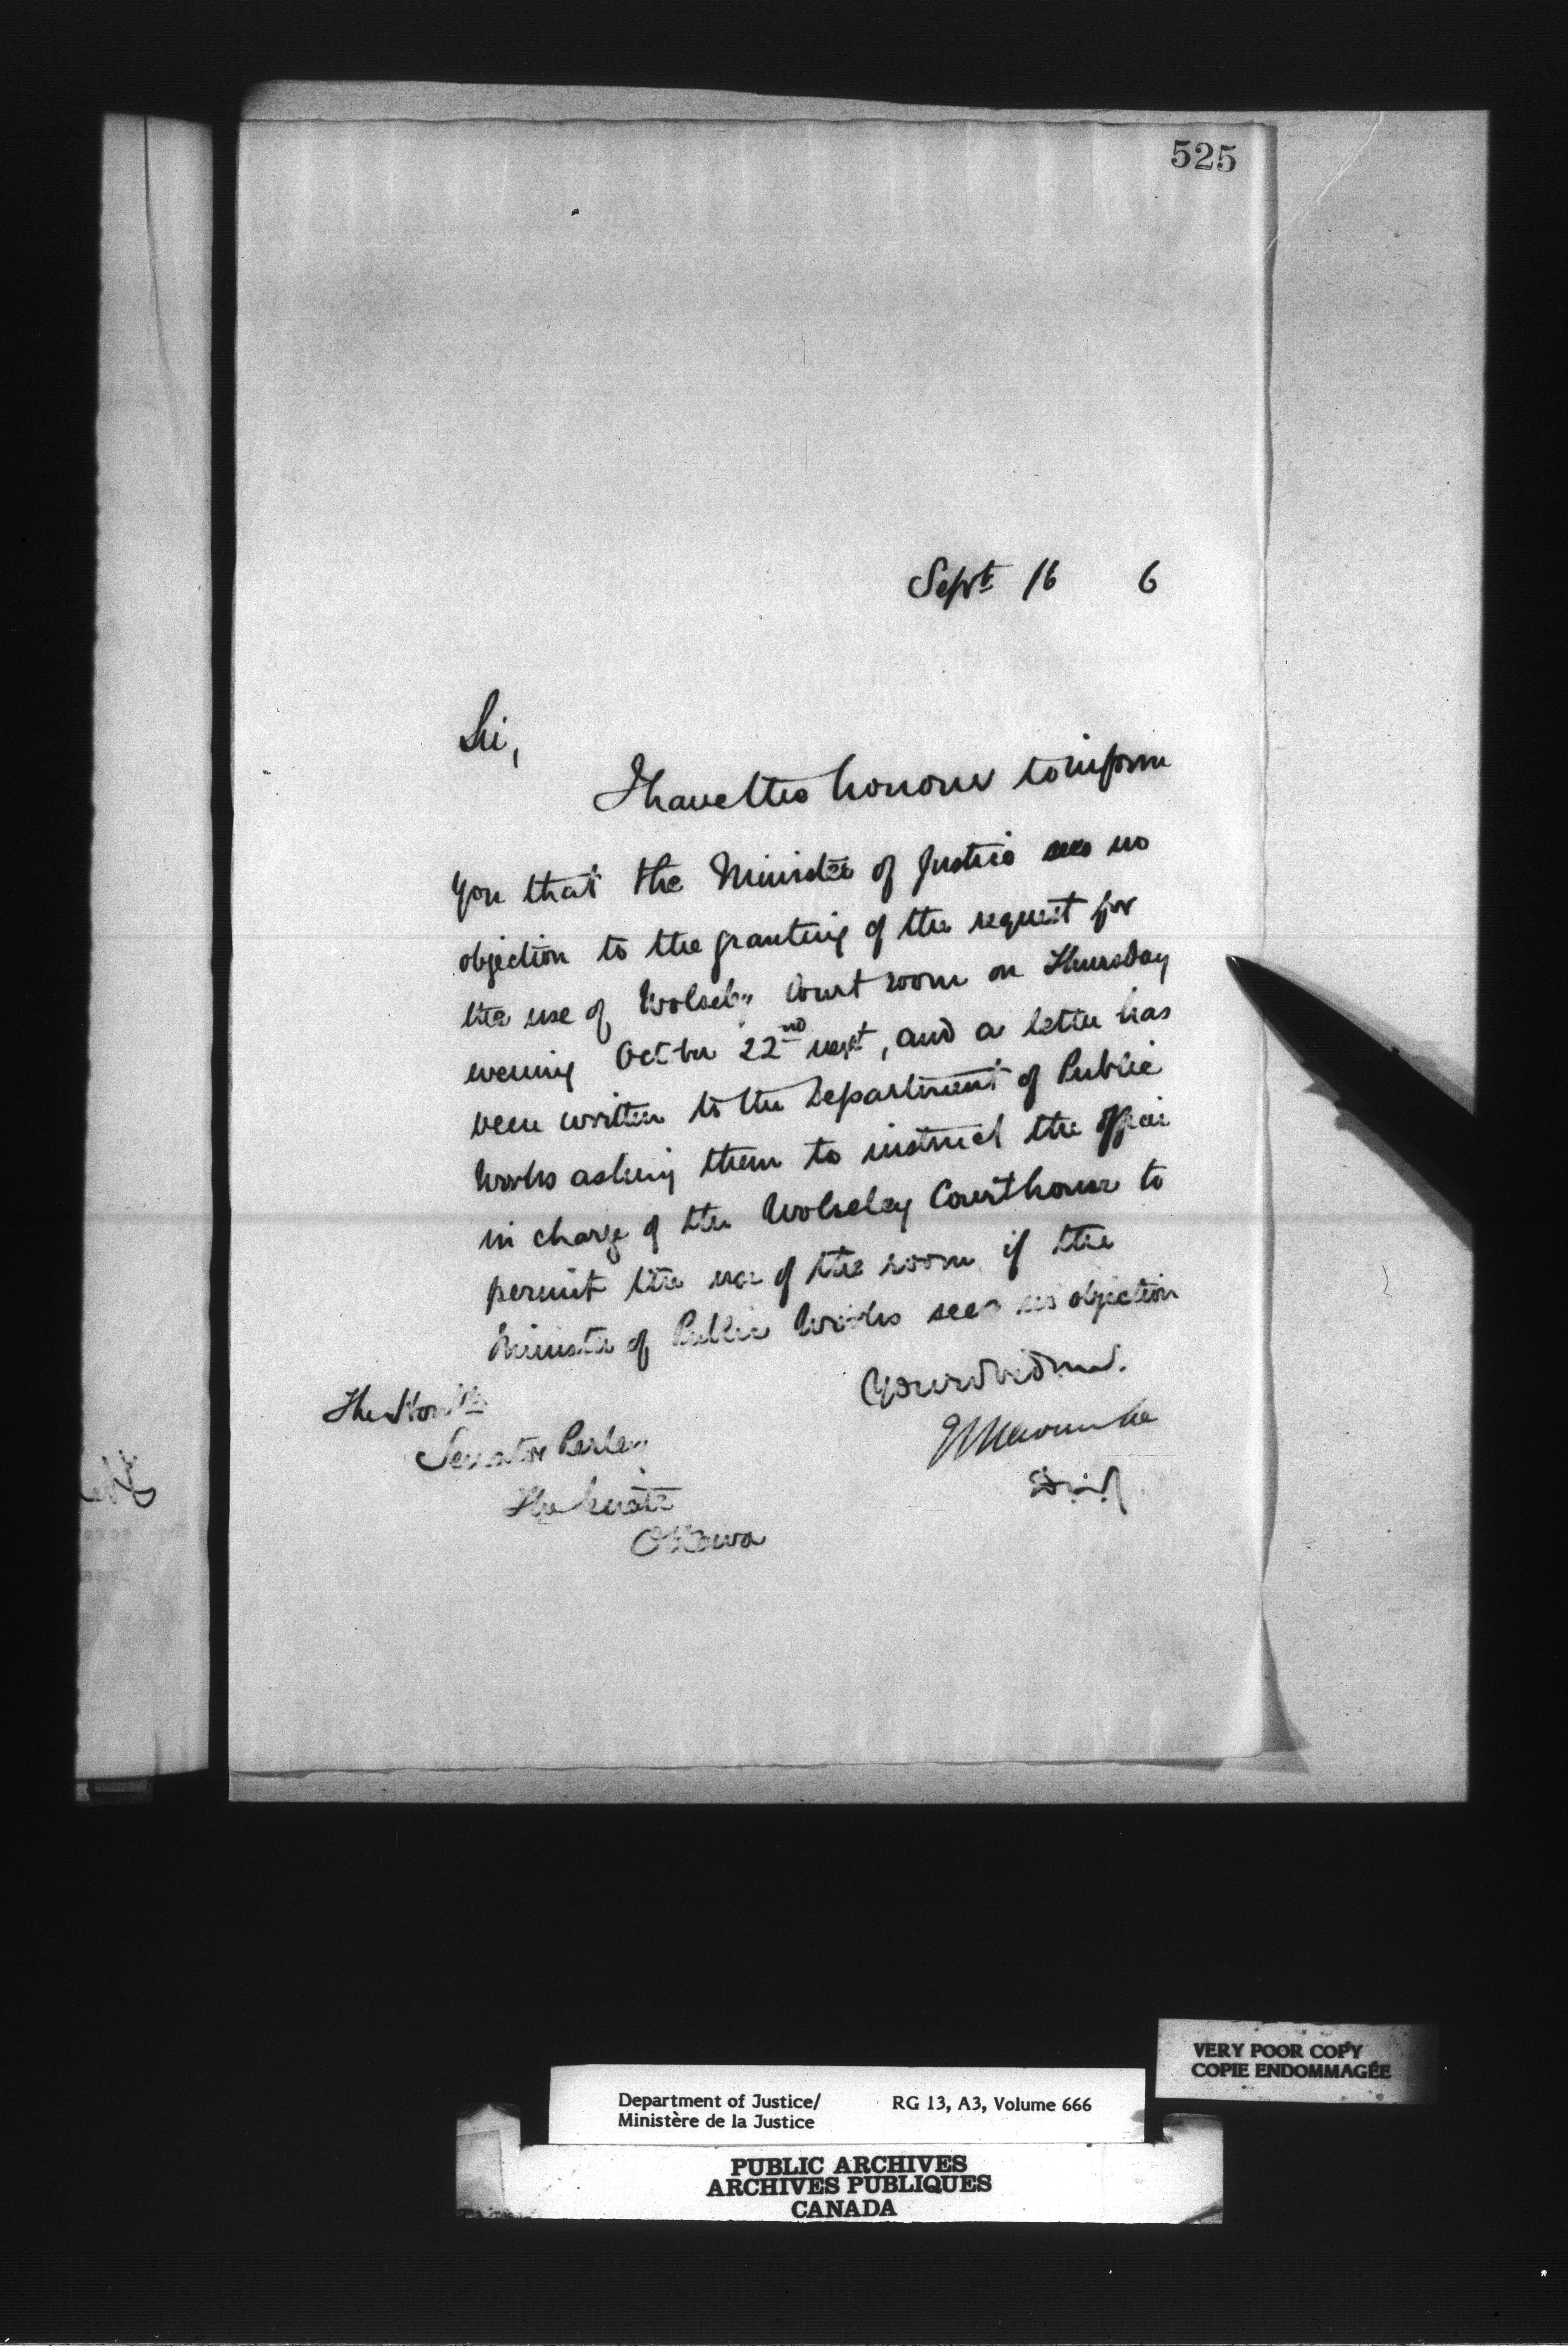 525
Sept 16 6
Sir,
I have the honour to inform
you that the Minister of Justice sees no
objection to the granting of the request for
the use of Wolseley Court room on Thursday
evening Octber 22nd next, and a letter has
been written to the Department of Public
Works asking them to instruct the officer
in charge of the Wolseley Courthouse to
permit the use of the room if the
Minister of Public Works sees no objection
The Honble
Senator Perley
The Senate
Ottawa
VERY POOR COPY
COPIE ENDOMMAGÉE
Department of Justice/ RG 13, A3, Volume 666
Ministère de la Justice
PUBLIC ARCHIVES
ARCHIVES PUBLIQUES
CANADA